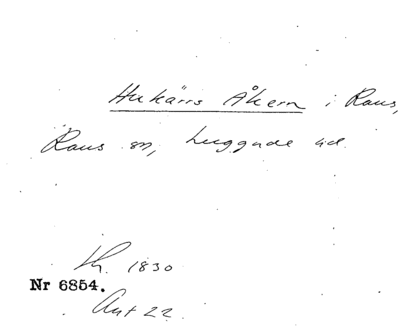 Hukärrs Åkern i Raus,
Raus sn, Luggude hd.
Lh. 1830
Nr 6854.
Akt 22